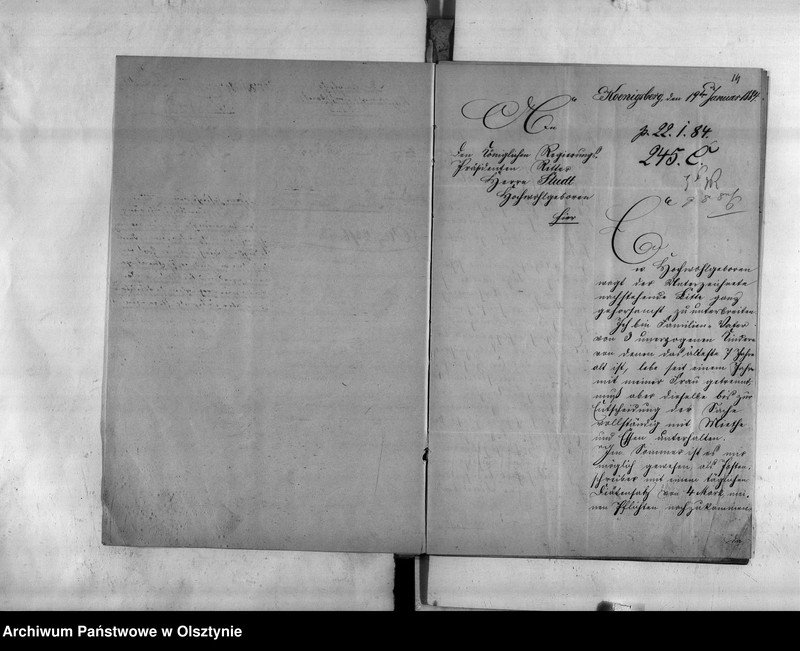 14
Koenigsberg, den 19ten Januar 1884.
p. 22. 1. 84.
245. C.
An
den Königlichen Regierungs-
Präsidenten Ritter
Herrn Studt
Hochwohlgeboren
hier
Ew
Hochwohlgeboren
wagt der Unterzeichnete
nachstehende Bitte ganz
gehorsamst zu unterbreiten.
Ich bin Familien-Vater
von 3 unerzogenen Kindern
von denen das älteste 7 Jahre
alt ist, lebe seit einem Jahre
mit meiner Frau getrennt,
muß aber dieselbe bis zur
Entscheidung der Sache
vollständig mit Miethe
und Essen unterhalten.
Im Sommer ist es mir
möglich gewesen als
schreiber mit einem täglichen
Diätensatz von 4 Mark mei-
nen Pflichten nachzukommen,
Archiwum Państwowe w Olsztynie